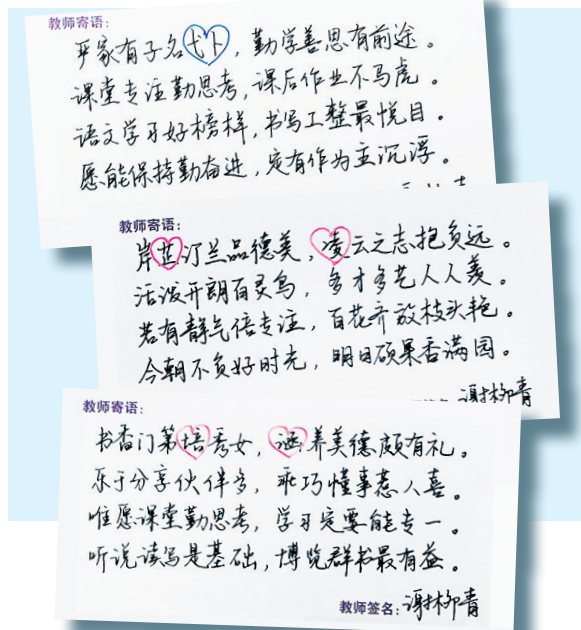 教师寄语：
严家有子名弋卜，勤学善思有前途。
课堂专注勤思考，课后作业不马虎。
语文学习好榜样，书写工整最悦目。
愿能保持勤奋进，定有作为主沉浮。
教师寄语：
岸芷汀兰品德美，凌云之志抱负远。
活泼开朗百灵鸟，多才多艺人人羡。
若有静气倍专注，百花齐放枝头艳。
今朝不负好时光，明日硕果香满园。
谢柳青
教师寄语：
书香门第培秀女，涵养美德颇有礼。
乐于分享伙伴多，乖巧懂事惹人喜。
唯愿课堂勤思考，学习定要能专一。
听说读写是基础，博览群书最有益。
教师签名：谢柳青